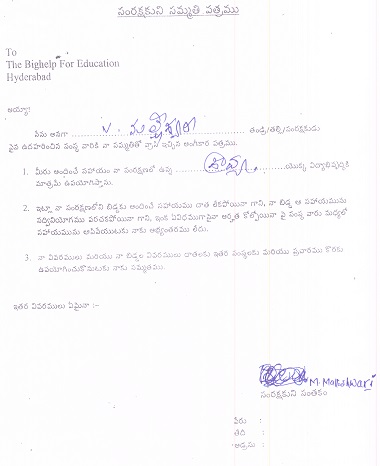 సంరక్షకుని సమ్మతి పత్రము
To
The Bighelp For Education
Hyderabad
అయ్యా!
నేను అనగా V. మహేశ్వరి తండ్రి/తల్లి/సంరక్షకుడు
పైన ఉదహరించిన సంస్థ వారికి నా సమ్మతితో వ్రాసి ఇచ్చిన అంగీకార పత్రము.
1. మీరు అందించే సహాయం నా సంరక్షణలో ఉన్న యొక్క విద్యాభివృద్ధికి
మాత్రమే ఉపయోగిస్తాను.
2. ఇట్లా నా సంరక్షణలోని బిడ్డకు అందించే సహాయము దాత లేకపోయినా గాని, నా బిడ్డ ఆ సహాయమును
సద్వినియోగము పరచకపోయినా గాని, ఇంకే విధముగానైనా అర్హత కోల్పోయినా పై సంస్థ వారు మధ్యలో
సహాయమును ఆపివేయుటకు నాకు అభ్యంతరము లేదు.
3. నా వివరములు మరియు నా బిడ్డల వివరములు దాతలకు ఇతర సంస్థలకు మరియు ప్రచారము కొరకు
ఉపయోగించుకొనుటకు నాకు సమ్మతము.
ఇతర వివరములు ఏమైనా :-
M. Maheshwari
సంరక్షకుని సంతకం
పేరు :
తేది :
అడ్రసు :